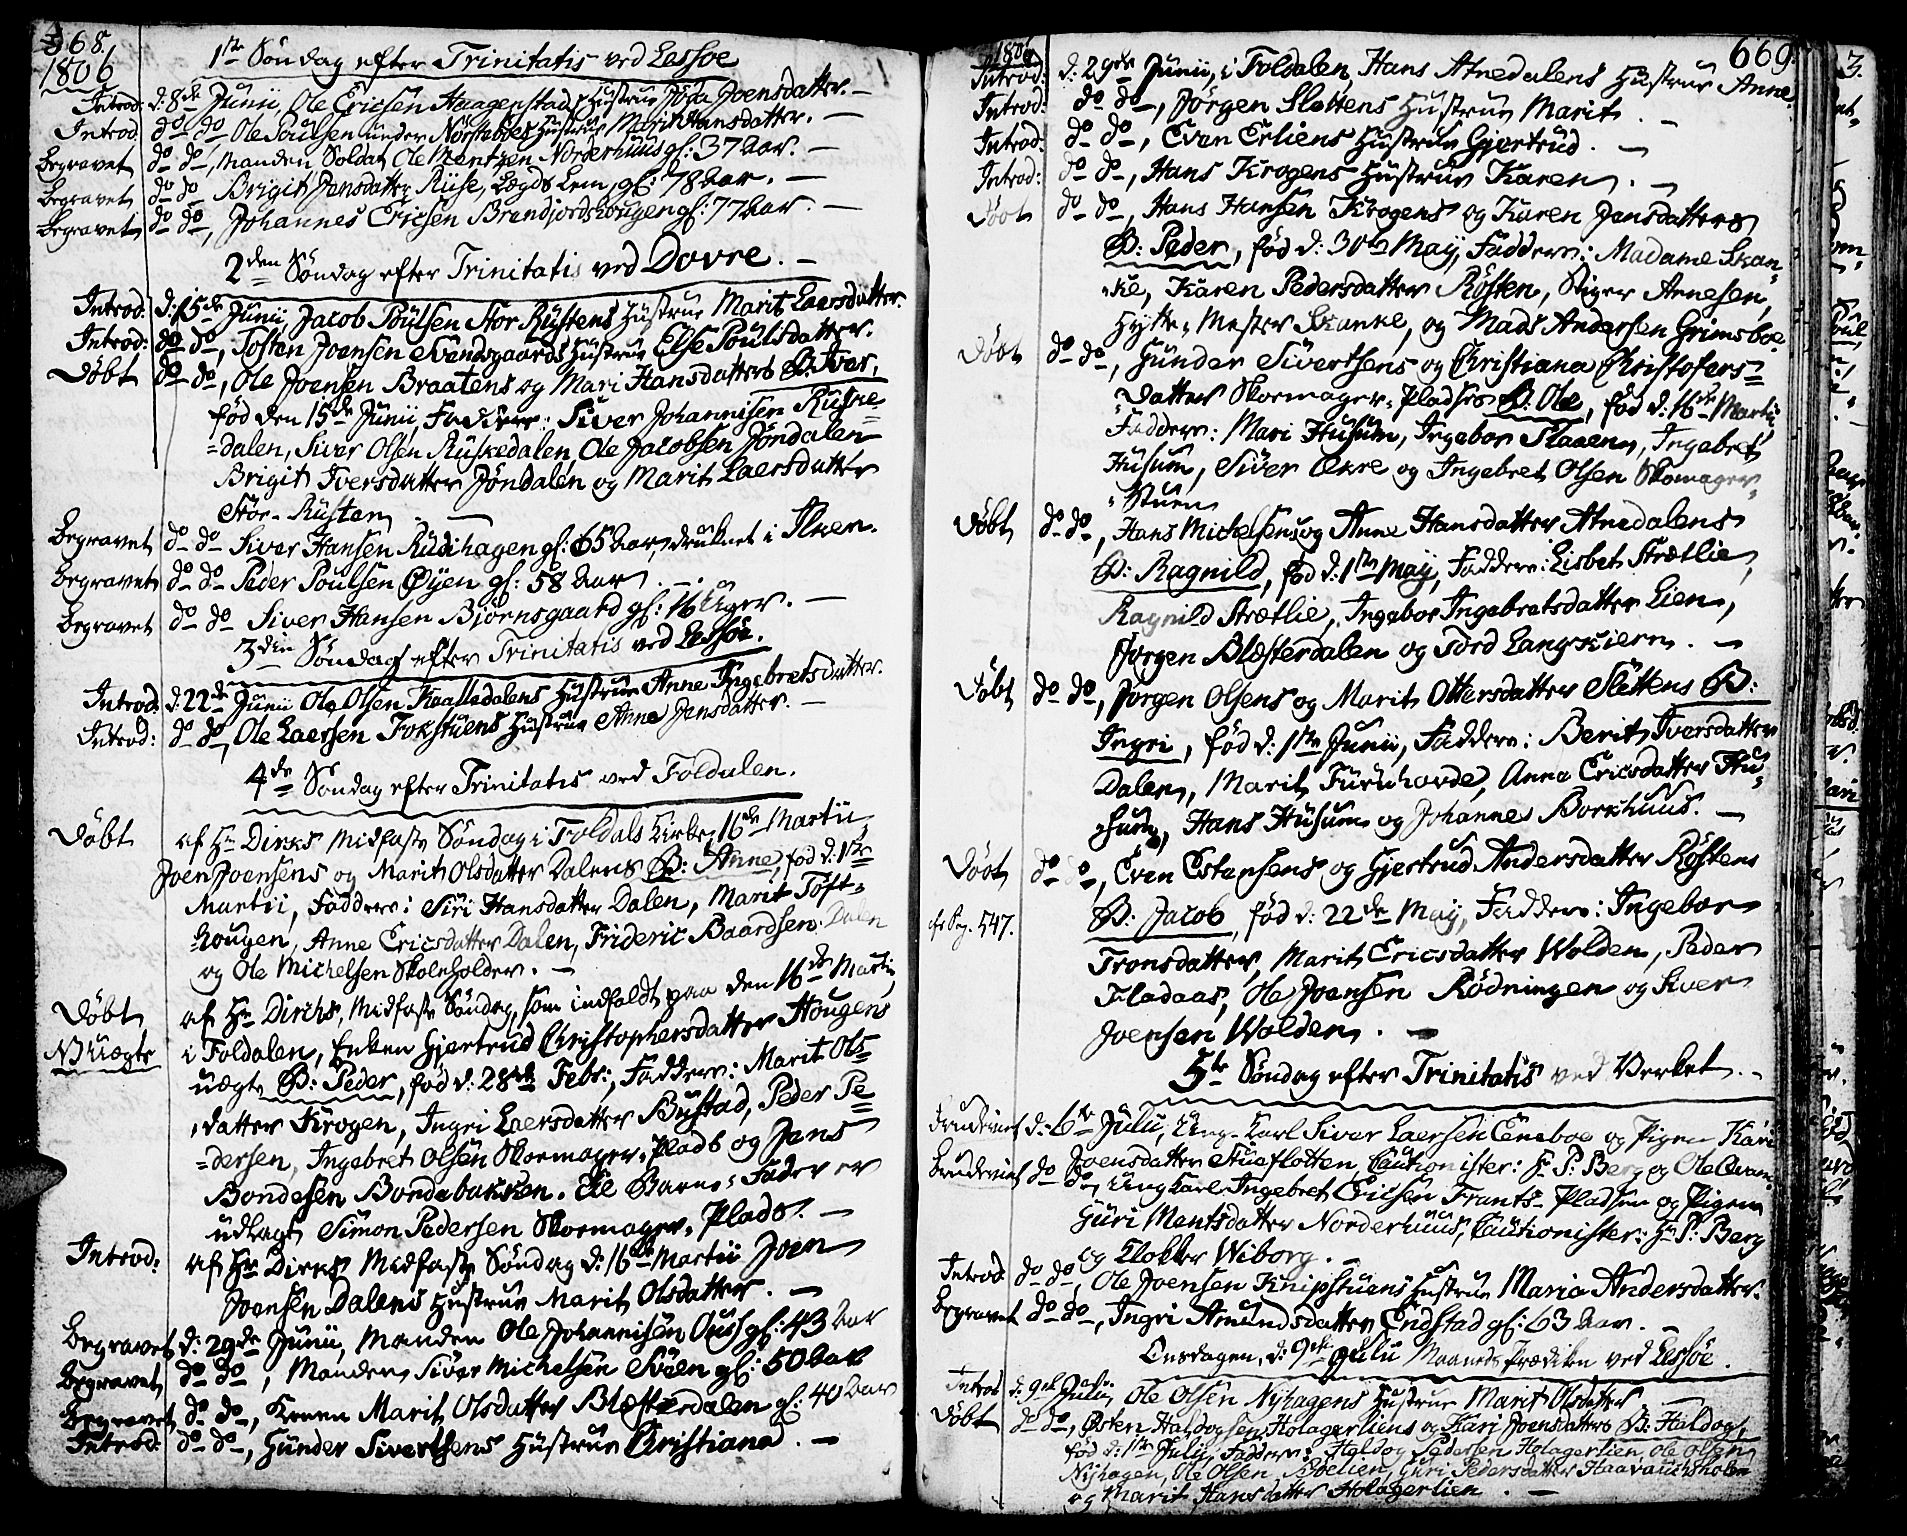 668.
1806
1ste Søndag efter Trinitatis ved Lessøe
Introd: d: 8de Junii, Ole Ericsen Haagenstads Hustrue Joensdatter. —
Introd do do, Ole Poulsen under Hustrue Marit Hansdatter. —
Begravet do do, Manden Soldat Ole Mentzen Norderhuus gl: 37 Aar. —
Begravet do do Brigit Jensdatter Riise, Lægds Lem, gl: 78 Aar. —
Begravet do do, Johannes Ericsen Brandjordshougen gl: 77 Aar. —
2den Søndag efter Trinitatis ved Dovre. —
Introd: d: 15de Junii, Jacob Poulsen Stor Rustens Hustrue Marit Laersdatter.
Introd: do do, Tosten Joensen Svendsgaards Hustrue Else Poulsdatter.
Døbt do do, Ole Joensen Braatens og Mari Hansdatters B: Iver,
fød den 15de Junii, Faddere: Siver Johannisen Ruske=
=dalen, Siver Olsen Ruskedalen, Ole Jacobsen Jøndalen
Brigit Iversdatter Jøndalen og Marit Laersdatter
Stor-Rusten
Begravet do do Siver Hansen Rudihagen gl: 65 Aar, druknet i
Begravet do do Peder Poulsen Øyen gl: 58 Aar. —
Begravet do do Siver Hansen Bjørnsgaard gl: 16 Uger. —
3die Søndag efter Trinitatis ved Lessøe.
Introd: d: 22de Junii Ole Olsen Hustrue Anne Ingebretsdatter.
Introd: do do, Ole Laersen Fokstuens Hustrue Anne Jensdatter. —
4de Søndag efter Trinitatis ved Foldalen.
Døbt af Hr Dircks Midfaste Søndag i Foldals Kirke, 16de Martii
Joen Joensens og Marit Olsdatter Dalens B: Anne, fød d: 1ste
Martii, Faddere: Siri Hansdatter Dalen, Marit Toft-
hougen, Anne Ericsdatter Dalen, Frideric Baardsen Dalen
og Ole Michelsen Skoleholder. —
Døbt af Hr Dirchs, Midfaste Søndag, som indfaldt paa den 16de Martii
NB Uægte i Foldalen, Enken Gjertrud Christophersdatter Hougens
uægte B: Peder, fød d: 28de Febr:, Faddere: Marit Ols=
datter Krogen, Ingri Laersdatter Bustad, Peder Pe=
=dersen, Ingebret Olsen Skomager-Plads og Jens
Bondesen Bondebakken. Til Barne-Fader er
udlagt Simon Pedersen Skomager-Plads. —
Introd: af Hr Dircks Midfaste Søndag d: 16de Martii Joen
Joensen Dalens Hustrue Marit Olsdatter. —
Begravet d: 29de Junii, Manden Ole Johannisen gl: 43 Aar
Begravet do do, Manden Siver Michelsen gl: 50 Aar
Begravet do do, Konen Marit Olsdatter Blæsterdalen gl: 40 Aar
Introd: do do, Gunder Sivertsens Hustrue Christiana. —
669
1806
Introd: d: 29de Junii, i Foldalen, Hans Atnedalens Hustrue Anne.
Introd: do do, Jørgen Slettens Hustrue Marit. —
Introd: do do, Even Erliens Hustrue Gjertrud. —
Introd: do do, Hans Krogens Hustrue Karen. —
Døbt do do, Hans Hansen Krogens og Karen Jensdatters
B: Peder, fød d: 30te May, Faddere: Madame Skan-
ke, Karen Pedersdatter Røsten, Birger Arnesen,
Hytte-Mester Skanke, og Mads Andersen Grimsboe.
Døbt do do, Gunder Sivertsens og Christiana Christofers=
datters Skomager-Pladses B: Ole, fød d: 16de Martii,
Faddere: Mari Husum, Ingebor Plaaen, Ingebret
Husum, Siver Ekre og Ingebret Olsen Skomager-
Stuen
Døbt do do, Hans Michelsens og Anne Hansdatter Atnedalens
B: Ragnild, fød d: 1ste May, Faddere: Lisbet Strætlie,
Ragnild Strætlie, Ingebor Ingebretsdatter Lien,
Jørgen Blæsterdalen og Tord Langskiern. —
Døbt do do, Jørgen Olsens og Marit Ottersdatter Slettens B:
Ingri, fød d: 1ste Junii, Faddere: Berit Iversdatter
Dalen, Marit Furuhovde, Anne Ericsdatter Hu-
sum, Hans Husum og Johannes Borkhuus. —
Døbt do do, Even Estensens og Gjertrud Andersdatter Røstens
cfr Pag. 547. B: Jacob, fød d: 22de May, Faddere: Ingebor
Tronsdatter, Marit Ericsdatter Wolden, Peder
Fladaas, Ole Joensen Rødningen og Siver
Joensen Wolden. —
5te Søndag efter Trinitatis ved Verket. —
d: 6te Julii, Ung-Karl Siver Laersen Eneboe og Pigen Kari
Joensdatter Stueflotten, Cautionister: Hr P: Berg og Ole
do do, Ung Karl Ingebret Ericsen Frants-Pladsen og Pigen
Guri Mentsdatter Norderhuus, Cautionister: Hr P: Berg
og Klokker Wiborg. —
Introd do do, Ole Joensen Knipstuens Hustrue Maria Andersdatter.
Begravet do do, Ingri Amundsdatter Endstad gl: 63 Aar. —
Onsdagen, d: 9de Julii Maaneds Prædiken ved Lessøe.
Introd d: 9de Julii, Ole Olsen Nyhagens Hustrue Marit Olsdatter —
Døbt do do, Østen Haldogsen Holagerliens og Kari Joensdatters B: Haldog,
fød d: 1ste Julii, Faddere: Haldog Pedersen Holagerlien, Ole Olsen
Nyhagen, Ole Olsen Guri Pedersdatter
og Marit Hansdatter Holagerlien. —